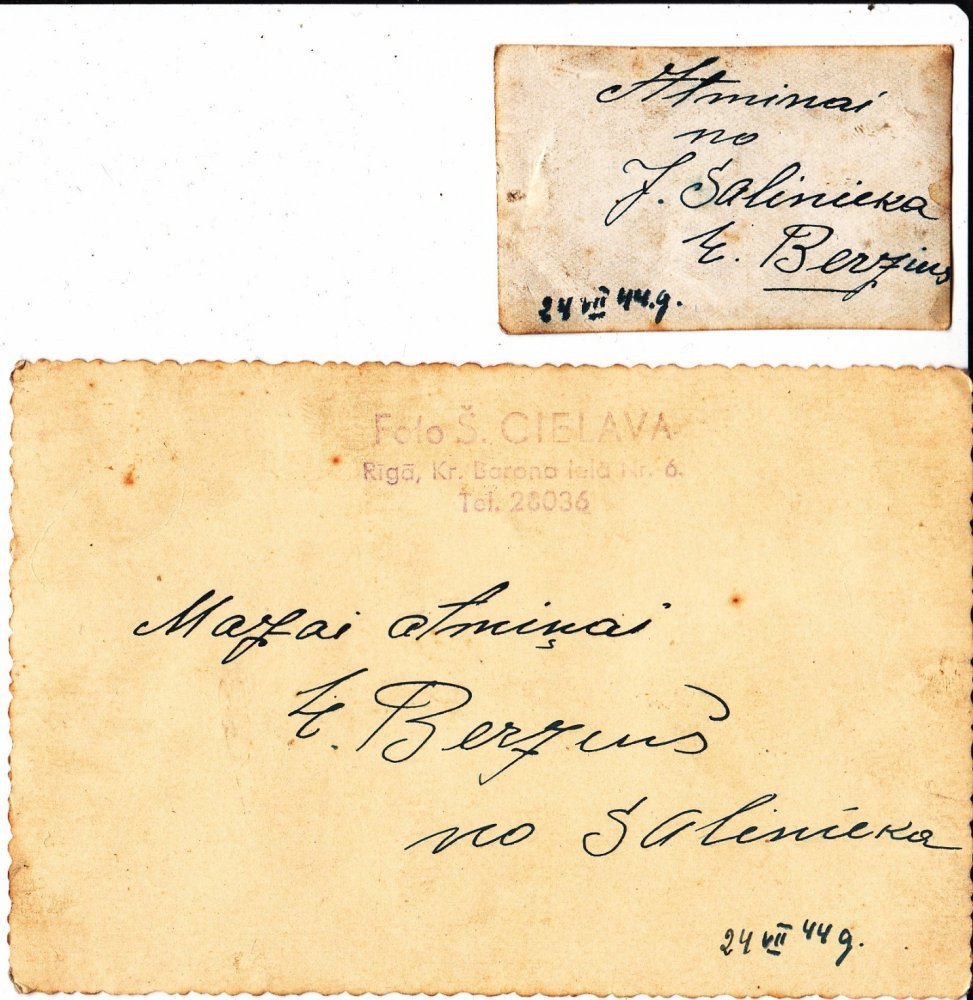 Atminai
no
J. Šalinieka
E. Berzins
24 VII 44.g.
Foto Š. CIELAVA
Rīgā, Kr. Barona ielā Nr. 6.
Tel. 28036
Mazai atmiņai
E. Berzins
no Šalinieka
24 VII 44 g.